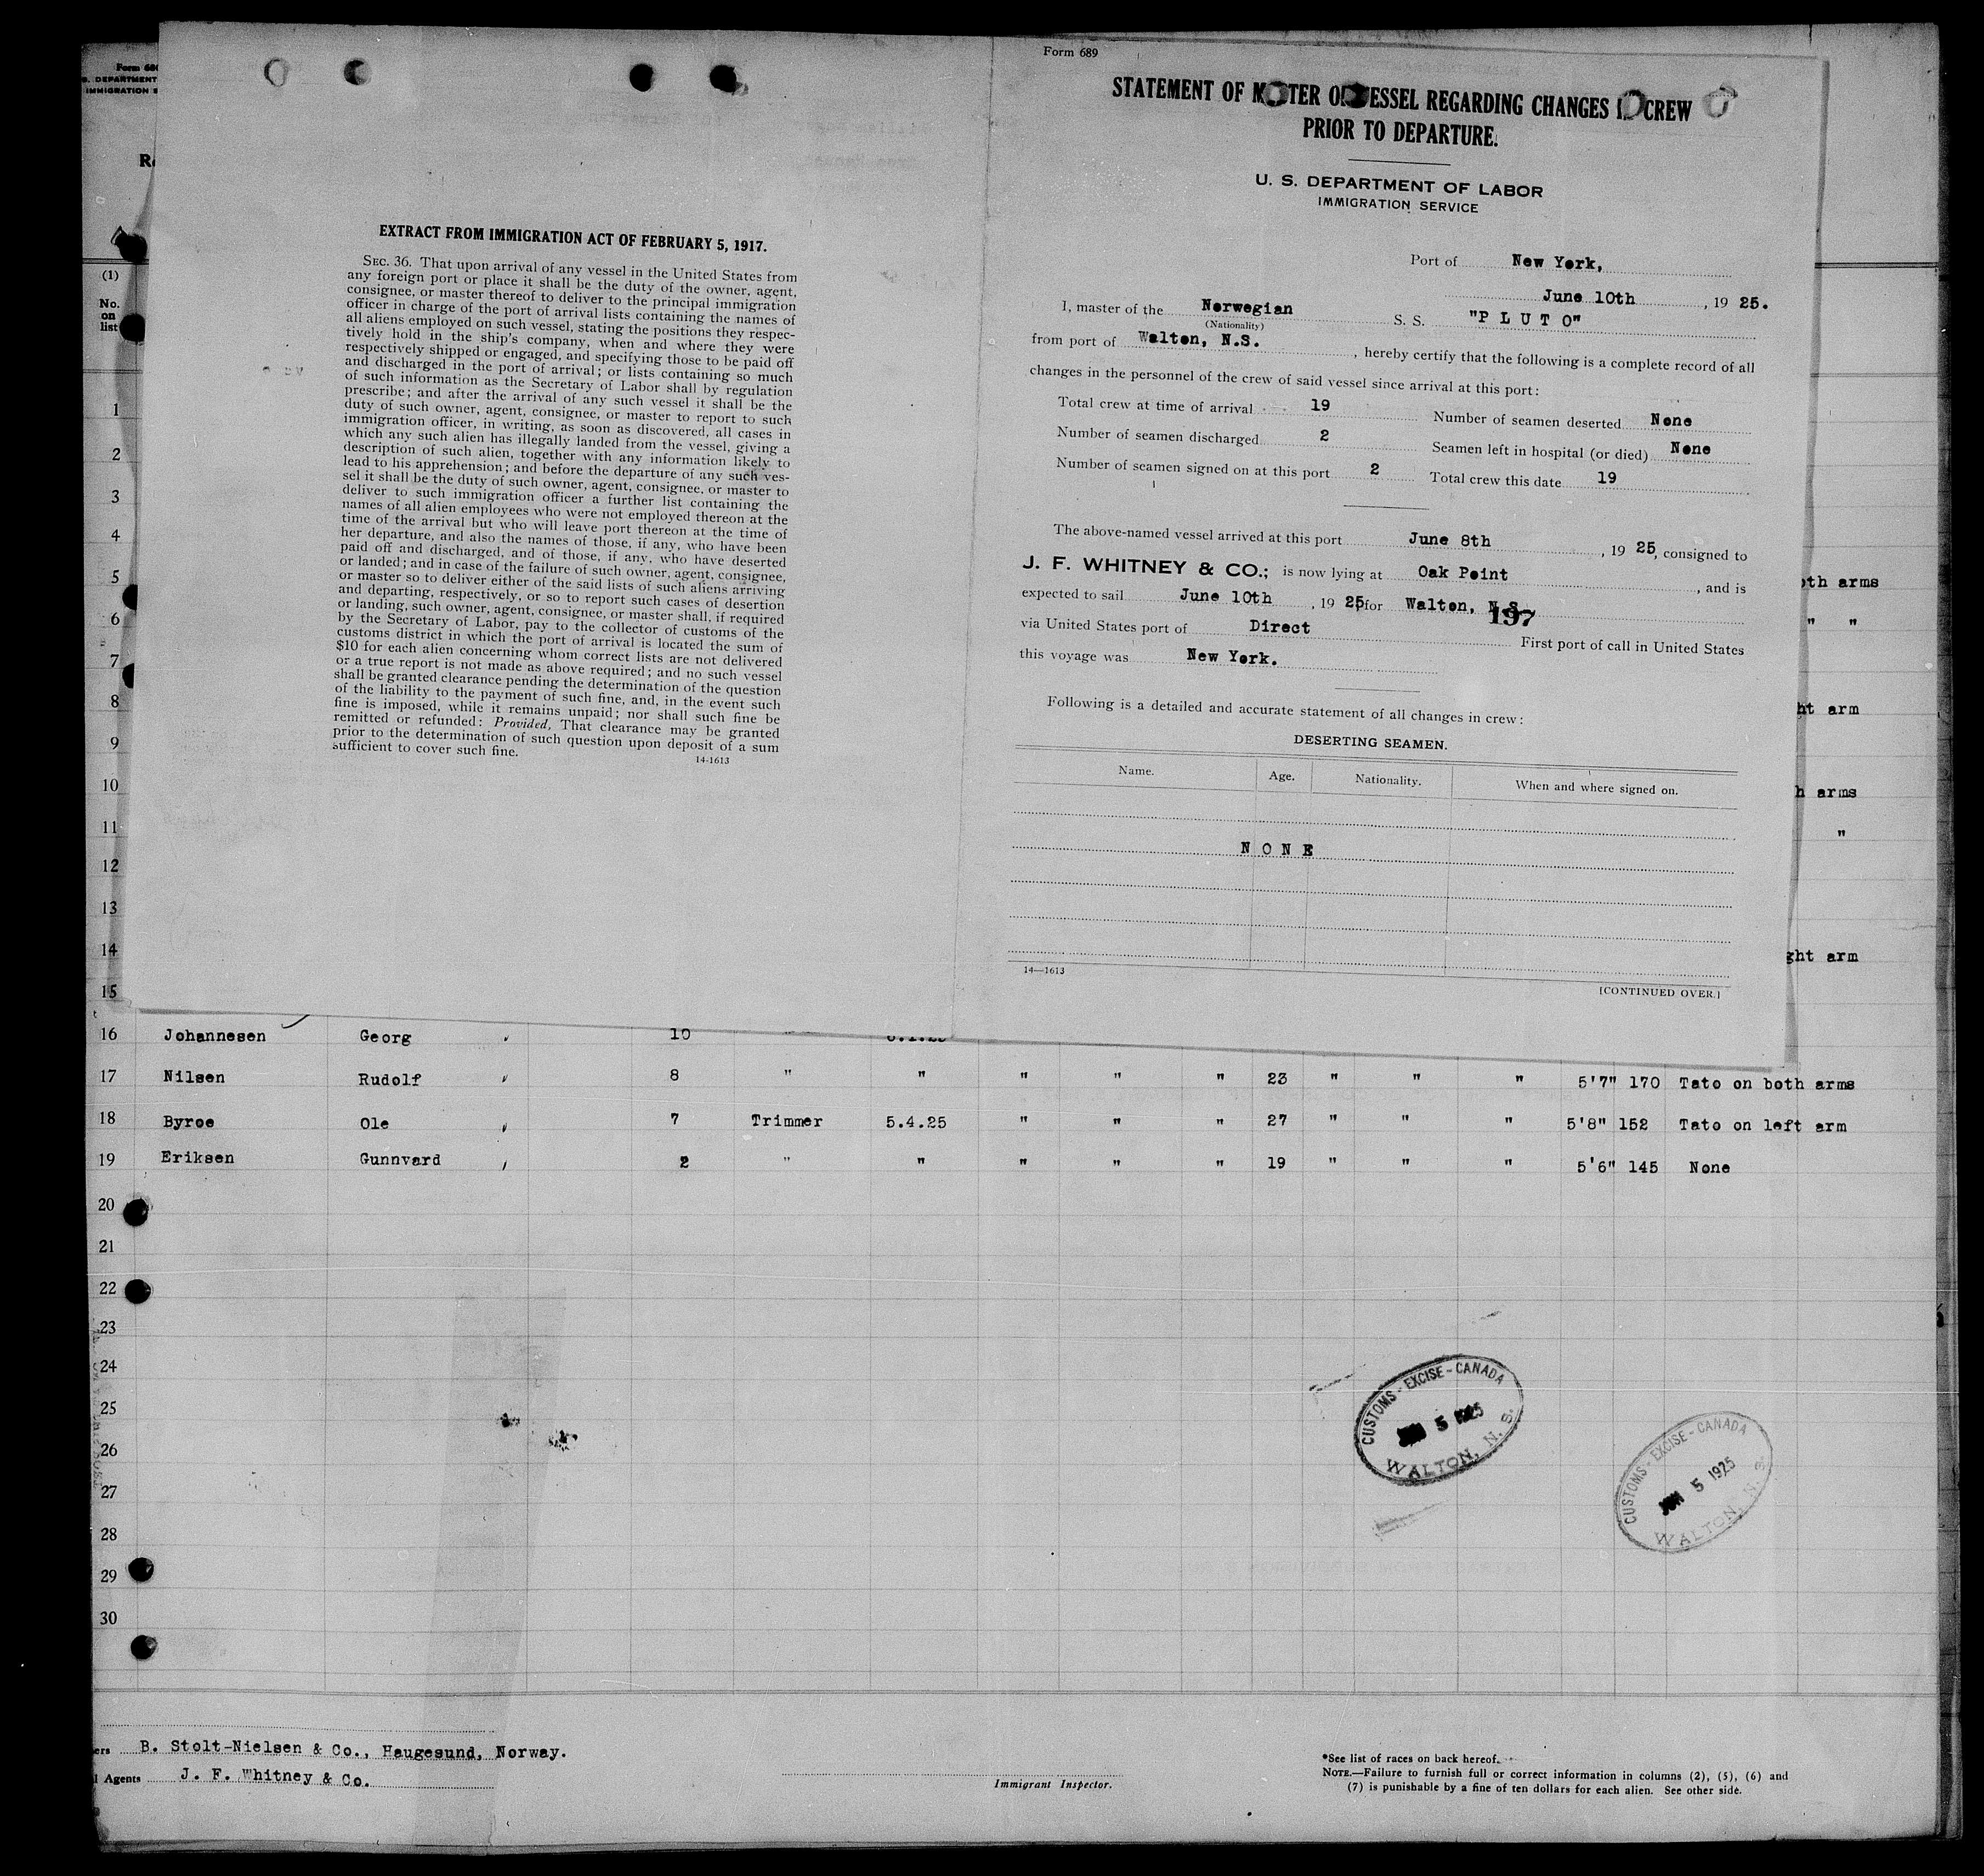 Form 686
S. DEPARTMENT
IMMIGRATION S
(1)
No.
on
list
1
2
3
4
5
6
7
8
9
10
11
12
13
14
15
EXTRACT FROM IMMIGRATION ACT OF FEBRUARY 5, 1917.
SEC. 36. That upon arrival of any vessel in the United States from
any foreign port or place it shall be the duty of the owner, agent,
consignee, or master thereof to deliver to the principal immigration
officer in charge of the port of arrival lists containing the names of
all aliens employed on such vessel, stating the positions they respec-
tively hold in the ship's company, when and where they were
respectively shipped or engaged, and specifying those to be paid off
and discharged in the port of arrival; or lists containing so much
of such information as the Secretary of Labor shall by regulation
prescribe; and after the arrival of any such vessel it shall be the
duty of such owner, agent, consignee, or master to report to such
immigration officer, in writing, as soon as discovered, all cases in
which any such alien has illegally landed from the vessel, giving a
description of such alien, together with any information likely to
lead to his apprehension; and before the departure of any such ves-
sel it shall be the duty of such owner, agent, consignee, or master to
deliver to such immigration officer a further list containing the
names of all alien employees who were not employed thereon at the
time of the arrival but who will leave port thereon at the time of
her departure, and also the names of those, if any, who have been
paid off and discharged, and of those, if any, who have deserted
or landed; and in case of the failure of such owner, agent, consignee,
or master so to deliver either of the said lists of such aliens arriving
and departing, respectively, or so to report such cases of desertion
or landing, such owner, agent, consignee, or master shall, if required
by the Secretary of Labor, pay to the collector of customs of the
customs district in which the port of arrival is located the sum of
$10 for each alien concerning whom correct lists are not delivered
or a true report is not made as above required; and no such vessel
shall be granted clearance pending the determination of the question
of the liability to the payment of such fine, and, in the event such
fine is imposed, while it remains unpaid; nor shall such fine be
remitted or refunded: Provided, That clearance may be granted
prior to the determination of such question upon deposit of a sum
sufficient to cover such fine.
14-1613
Form 689
STATEMENT OF MASTER OF VESSEL REGARDING CHANGES IN CREW
PRIOR TO DEPARTURE.
U. S. DEPARTMENT OF LABOR
IMMIGRATION SERVICE
Port of New York,
June 10th, 19 25.
I, master of the Norwegian S. S. "P L U T O"
(Nationality)
from port of Walton, N.S., hereby certify that the following is a complete record of all
changes in the personnel of the crew of said vessel since arrival at this port:
Total crew at time of arrival 19 Number of seamen deserted None
Number of seamen discharged 2 Seamen left in hospital (or died) None
Number of seamen signed on at this port 2 Total crew this date 19
The above-named vessel arrived at this port June 8th, 19 25, consigned to
J. F. WHITNEY & CO.; is now lying at Oak Point, and is
expected to sail June 10th, 19 25 for Walton, N.S.
197
via United States port of Direct First port of call in United States
this voyage was New York.
Following is a detailed and accurate statement of all changes in crew:
DESERTING SEAMEN.
Name. Age. Nationality. When and where signed on.
N O N E
14—1613
[CONTINUED OVER.]
oth arms
" "
ht arm
h arms
"
ght arm
16 Johannesen Georg 10
17 Nilsen Rudolf 8 " " " " " 23 " " " 5'7" 170 Tato on both arms
18 Byroe Ole 7 Trimmer 5.4.25 " " " 27 " " " 5'8" 152 Tato on left arm
19 Eriksen Gunnvard 2 " " " " " 19 " " " 5'6" 145 None
20
21
22
23
24
25
26
27
28
29
30
CUSTOMS - EXCISE - CANADA
JUN 5 1925
WALTON, N. S.
CUSTOMS - EXCISE - CANADA
JUN 5 1925
WALTON, N. S.
ers B. Stolt-Nielsen & Co., Haugesund, Norway.
l Agents J. F. Whitney & Co.
Immigrant Inspector.
*See list of races on back hereof.
NOTE.—Failure to furnish full or correct information in columns (2), (5), (6) and
(7) is punishable by a fine of ten dollars for each alien. See other side.